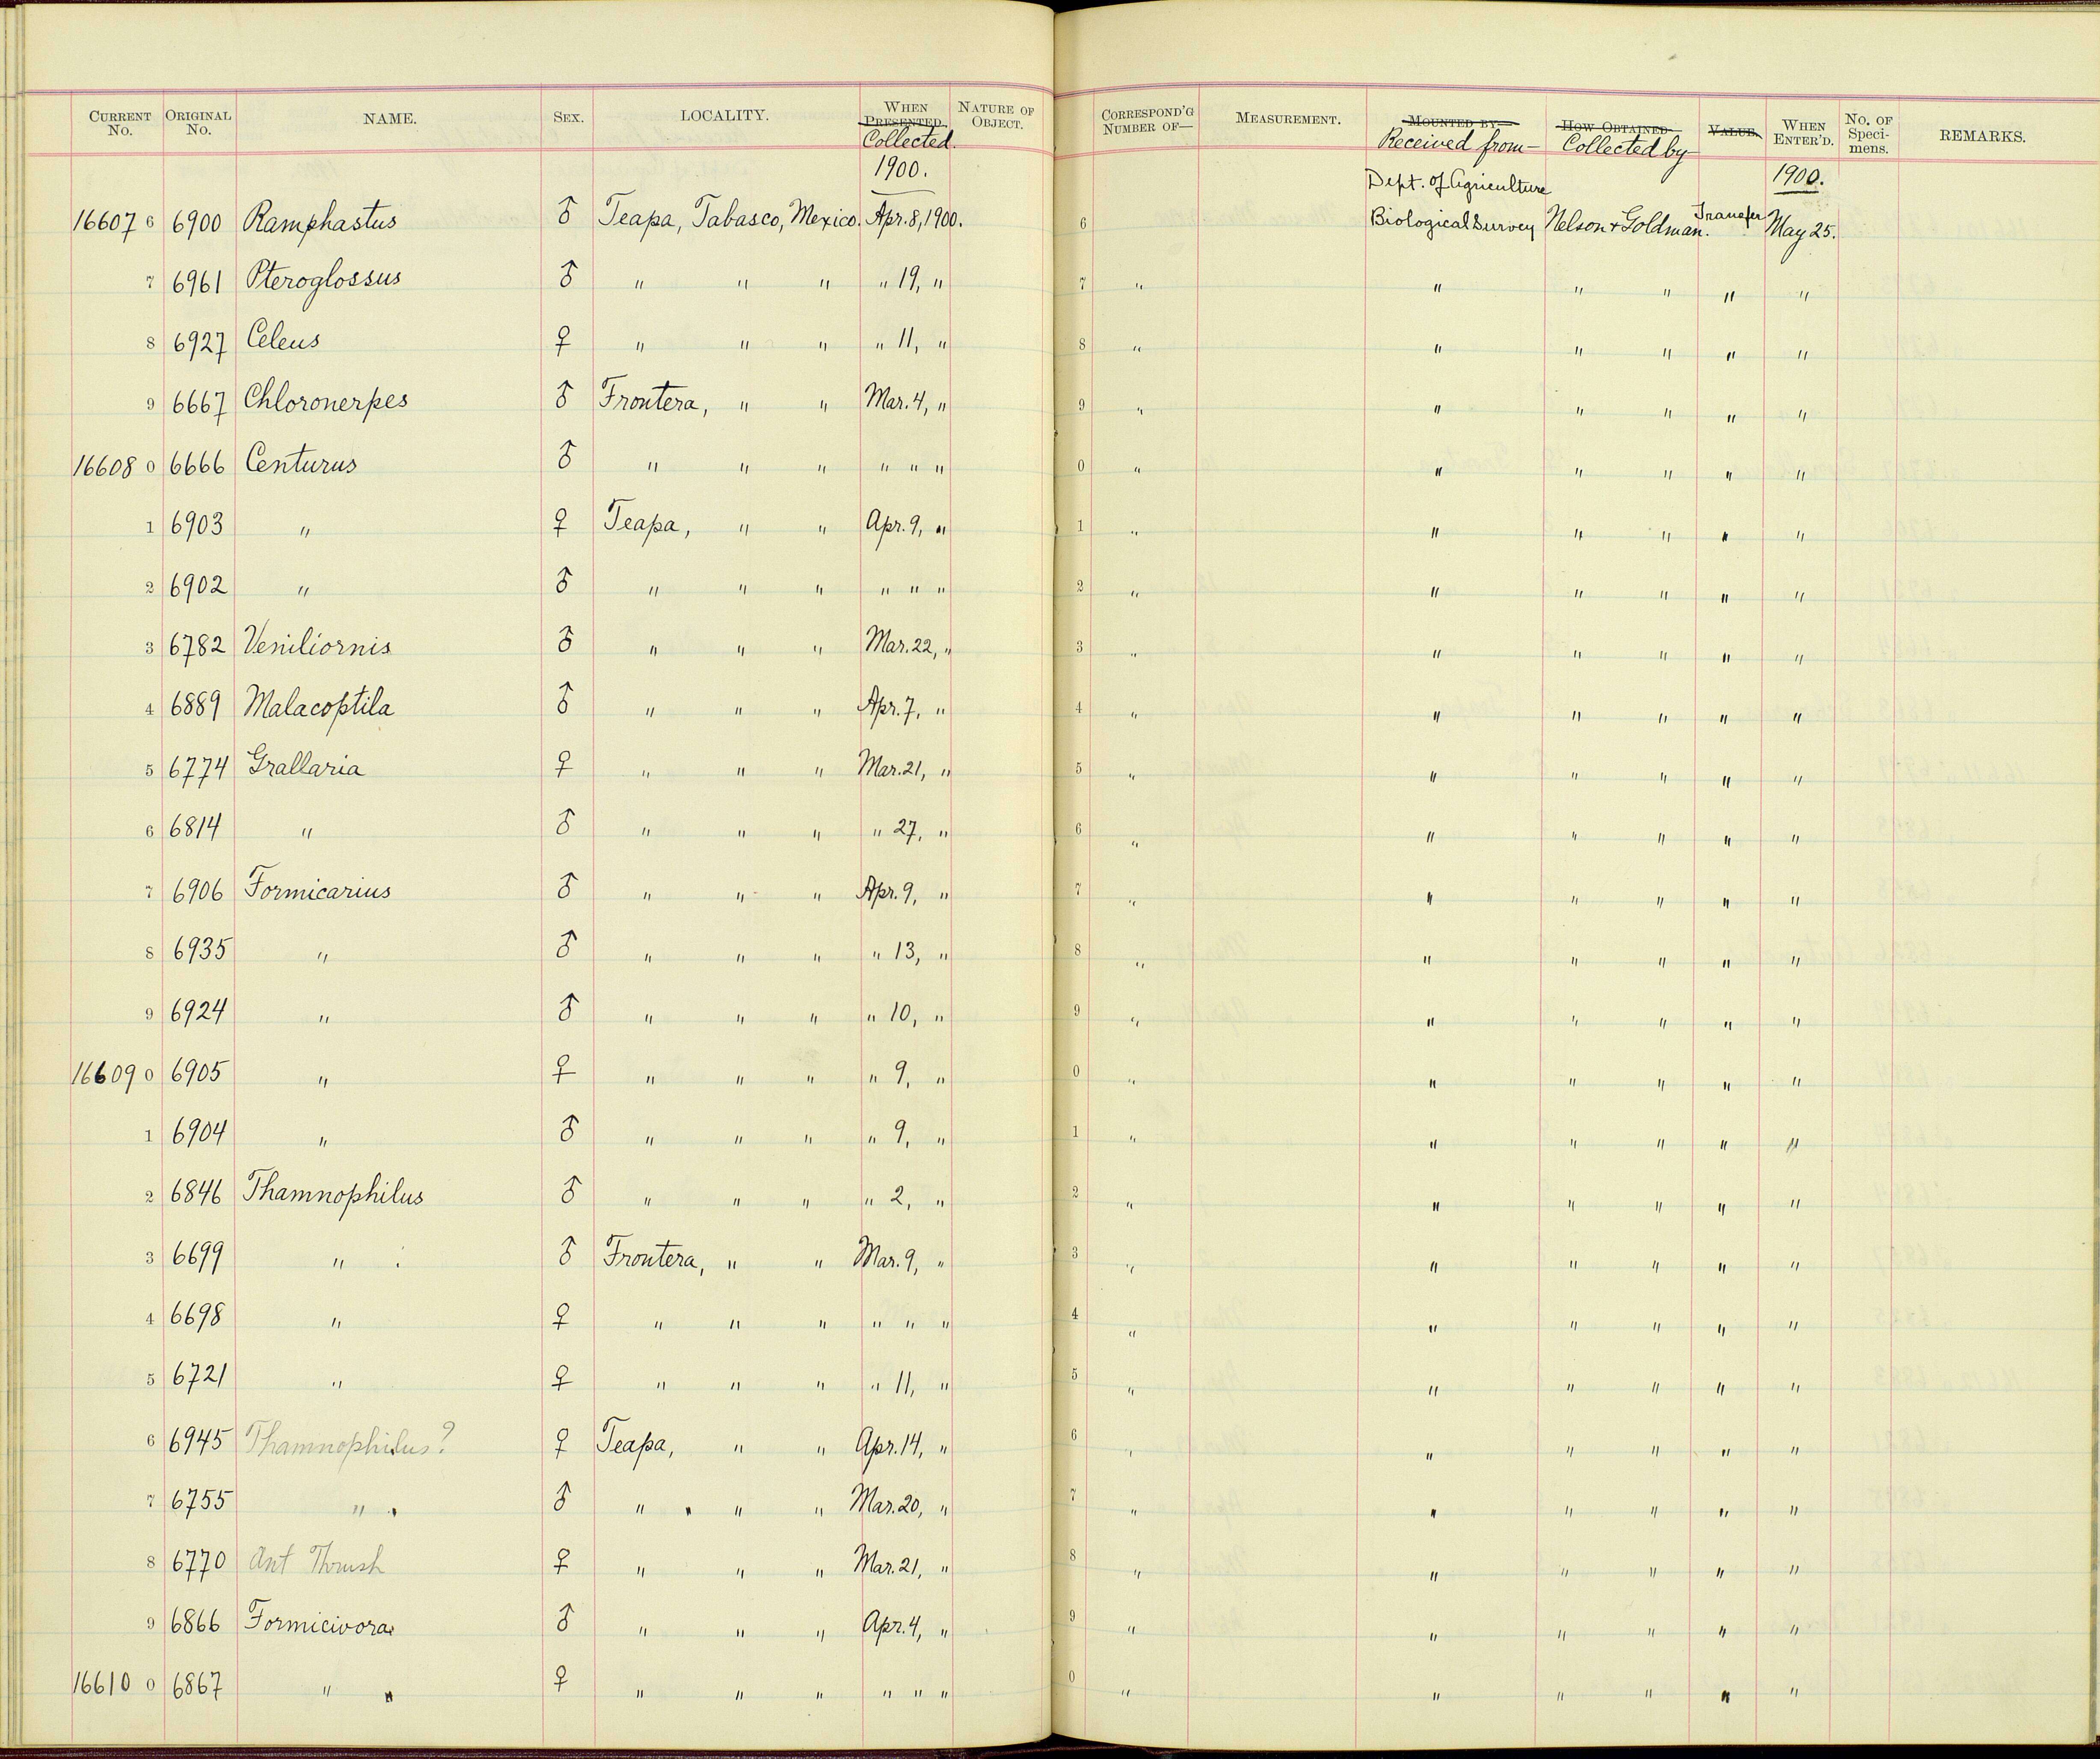 CURRENT No. ORIGINAL No. NAME. SEX. LOCALITY. WHEN PRESENTED Collected. NATURE OF OBJECT. CORRESPOND'G NUMBER OF— MEASUREMENT. MOUNTED BY— Received from— HOW OBTAINED Collected by VALUE. WHEN ENTER'D. No. OF Speci- mens. REMARKS.
1900. Dept. of Agriculture 1900.
16607 6 6900 Ramphastus ♂ Teapa, Tabasco, Mexico. Apr. 8, 1900. 6 Biological Survey Nelson + Goldman. Transfer May 25.
7 6961 Pteroglossus ♂ " " " " 19, " 7 " " " " " "
8 6927 Celeus ♀ " " " " 11, " 8 " " " " " "
9 6667 Chloronerpes ♂ Frontera, " " Mar. 4, " 9 " " " " " "
16608 0 6666 Centurus ♂ " " " " " " 0 " " " " " "
1 6903 " ♀ Teapa, " " Apr. 9, " 1 " " " " " "
2 6902 " ♂ " " " " " " 2 " " " " " "
3 6782 Veniliornis ♂ " " " Mar. 22, " 3 " " " " " "
4 6889 Malacoptila ♂ " " " Apr. 7, " 4 " " " " " "
5 6774 Grallaria ♀ " " " Mar. 21, " 5 " " " " " "
6 6814 " ♂ " " " " 27, " 6 " " " " " "
7 6906 Formicarius ♂ " " " Apr. 9, " 7 " " " " " "
8 6935 " ♂ " " " " 13, " 8 " " " " " "
9 6924 " ♂ " " " " 10, " 9 " " " " " "
16609 0 6905 " ♀ " " " " 9, " 0 " " " " " "
1 6904 " ♂ " " " " 9, " 1 " " " " " "
2 6846 Thamnophilus ♂ " " " " 2, " 2 " " " " " "
3 6699 " ♂ Frontera, " " Mar. 9, " 3 " " " " " "
4 6698 " ♀ " " " " " " 4 " " " " " "
5 6721 " ♀ " " " " 11, " 5 " " " " " "
6 6945 Thamnophilus? ♀ Teapa, " " Apr. 14, " 6 " " " " " "
7 6755 " ♂ " " " Mar. 20, " 7 " " " " " "
8 6770 Ant Thrush ♀ " " " Mar. 21, " 8 " " " " " "
9 6866 Formicivora ♂ " " " Apr. 4, " 9 " " " " " "
16610 0 6867 " ♀ " " " " " " 0 " " " " " "